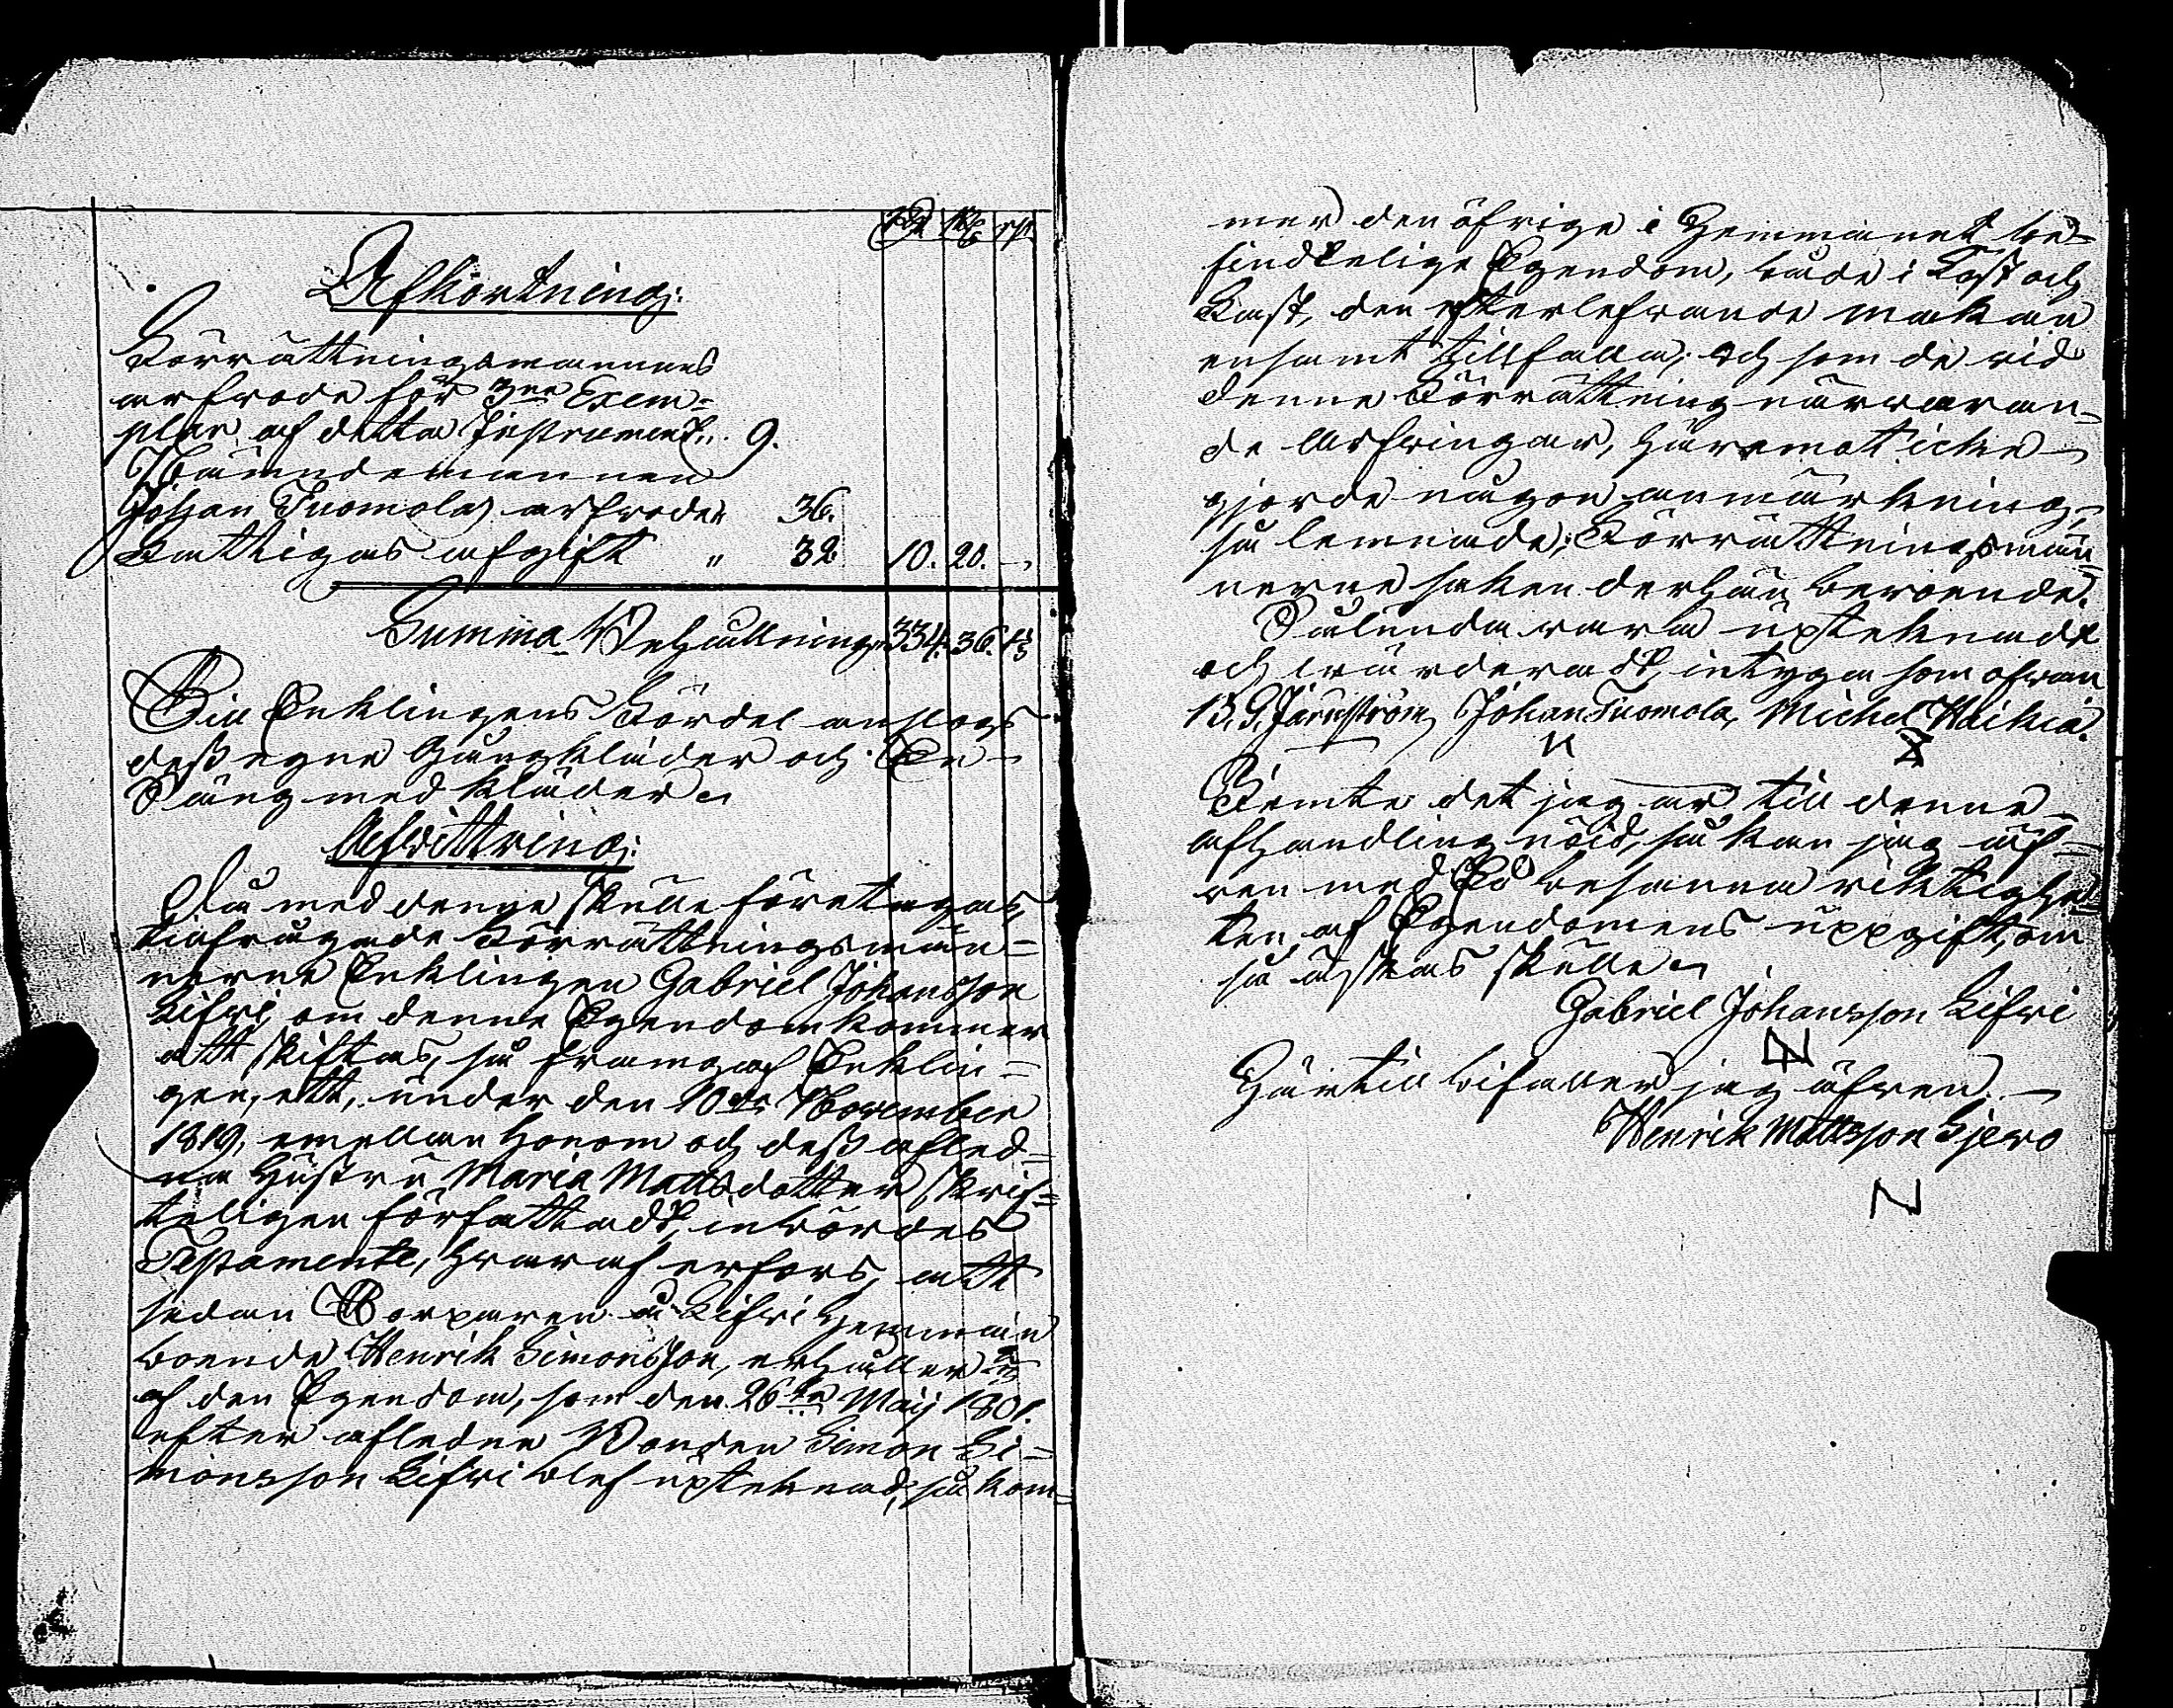 Rdr ß rst
Afkortning:
Förrättningsmannens
arfvode för 3ne Exem=
plar af detta Instrument.. 9.
Nämndemannen
Johan Tuomolas arfvode „ 36.
Fattigas afgift „ 32. 10. 20. –
Summa Behållning 334. 36.
Till Enklingens Fördel anslogs
dess egne Gångkläder och En
Säng med kläder.
Afvittring:
Då med denne skulle företagas,
tillfrågade Förrättningsmän=
nerne Enklingen Gabriel Johansson
Lifvi, om denne Egendom kommer
att skiftas, så framgaf Enklin=
gen, ett, under den 10de November
1819, emellan honom och dess afled=
na Hustru Maria Mattsdotter skrif=
teligen författadt, inbördes
Testamente, hvaraf erfors, att
sedan Torparen å Lifvi Hemman
boende Henrik Simonsson, erhåller
af den Egendom, som den 26te Maij 1801.
efter afledne Bonden Simon Si=
monsson Lifvi blef upteknad, så kom=
mer den öfrige i Hemmanet be=
findtelige Egendom, både i Löst och
Fast, den efterlefvande makan
ensamt tillfalla; och som de vid
denne Förrättning närvaran=
de Arfvingar, häremot icke
gjorde någon anmärkning,
så lemnade, Förrättningsmän
nerne saken derhän beroende.
Sålunda vara uptecknadt
och värderadt, intyga som ofvan
B. G. Järnström, Johan Tuomola, Michel Waikia.
Jemte det jag är till denne
afhandling nöjd, så kan jag äf=
ven med Ed besanna riktighe=
ten af Egendomens uppgift, om
så äskas skulle.
Gabriel Johansson Lifvi
Härtill bifaller jag äfven.
Henrik Mattsson Sjero
N